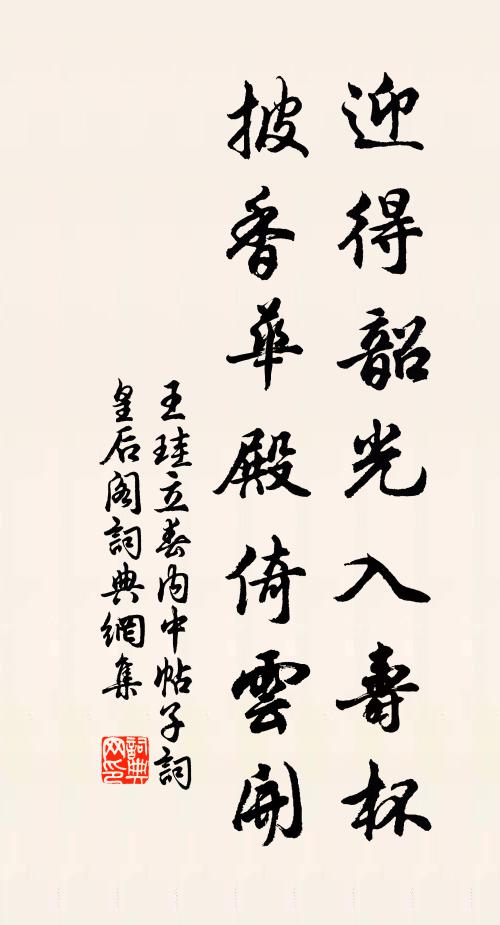 迎得韶光入壽杯
披香華殿倚雲開
王珪立春內中帖子詞
皇后阁詞典網集
詞典網印